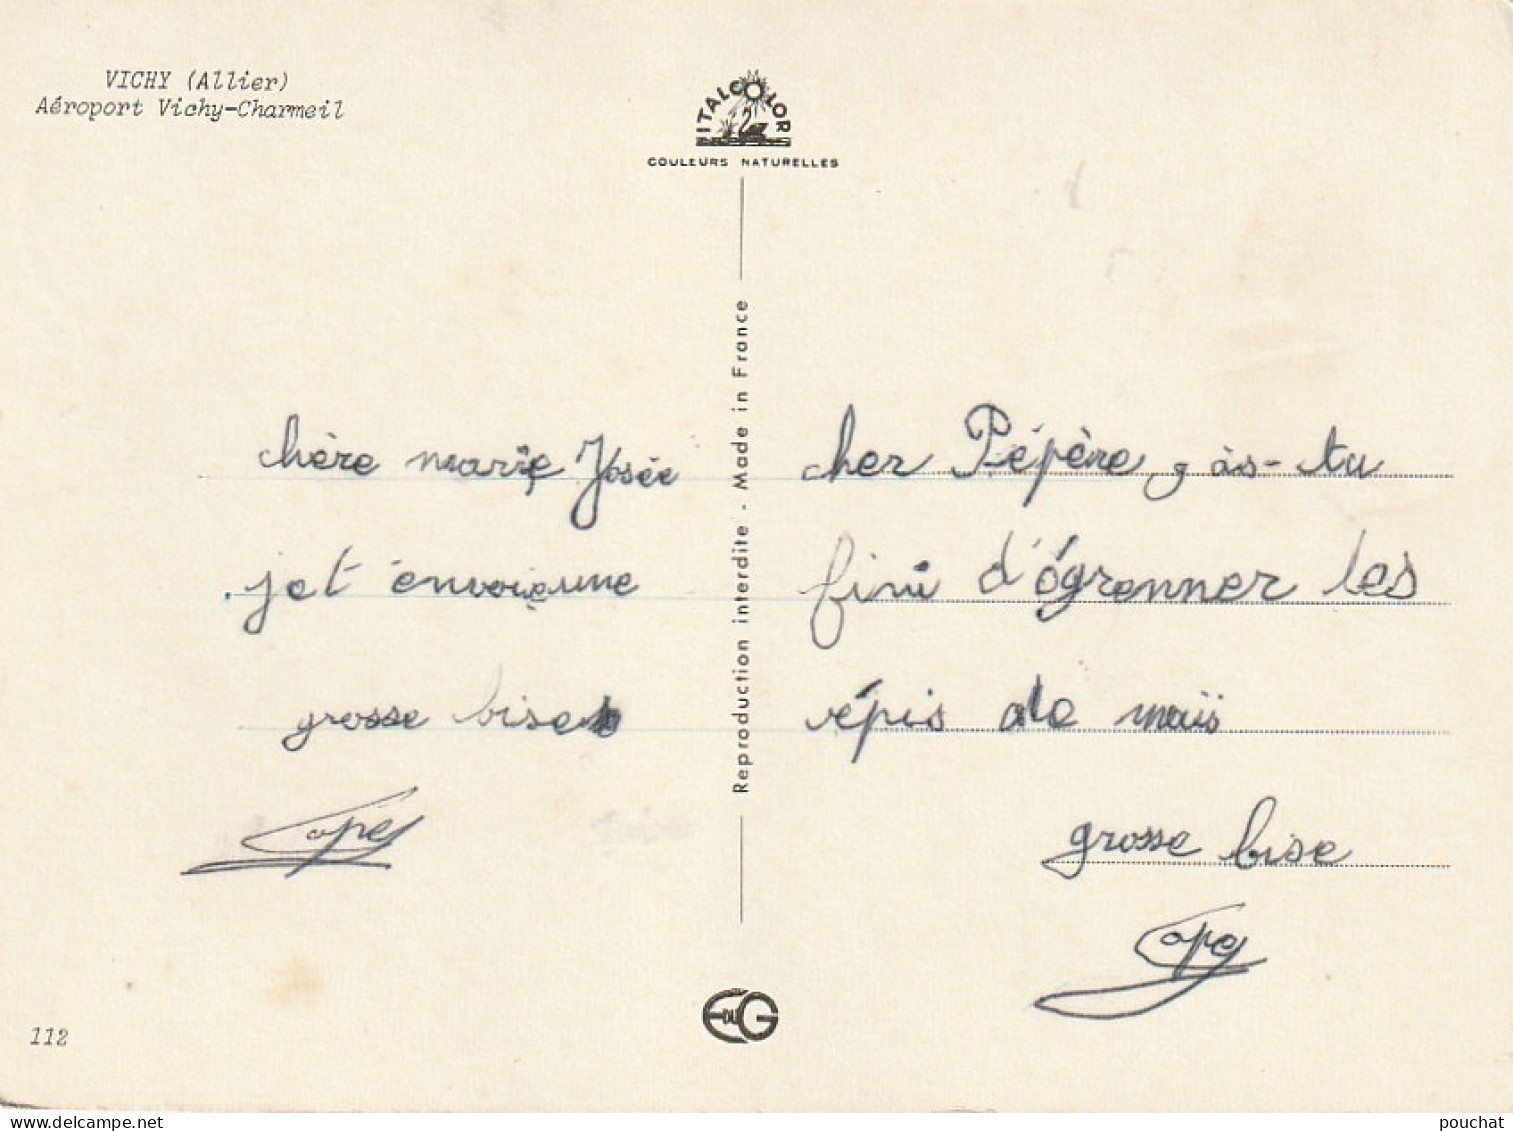 VICHY (Allier)
Aéroport Vichy-Charmeil
ITALCOLOR
COULEURS NATURELLES
Reproduction interdite - Made in France
chère marie Josée
je t'envoie une
grosse bise
cher Pépère, as-tu
fini d'égrenner les
épis de maïs
grosse bise
112
EDUG
www.delcampe.net
pouchat